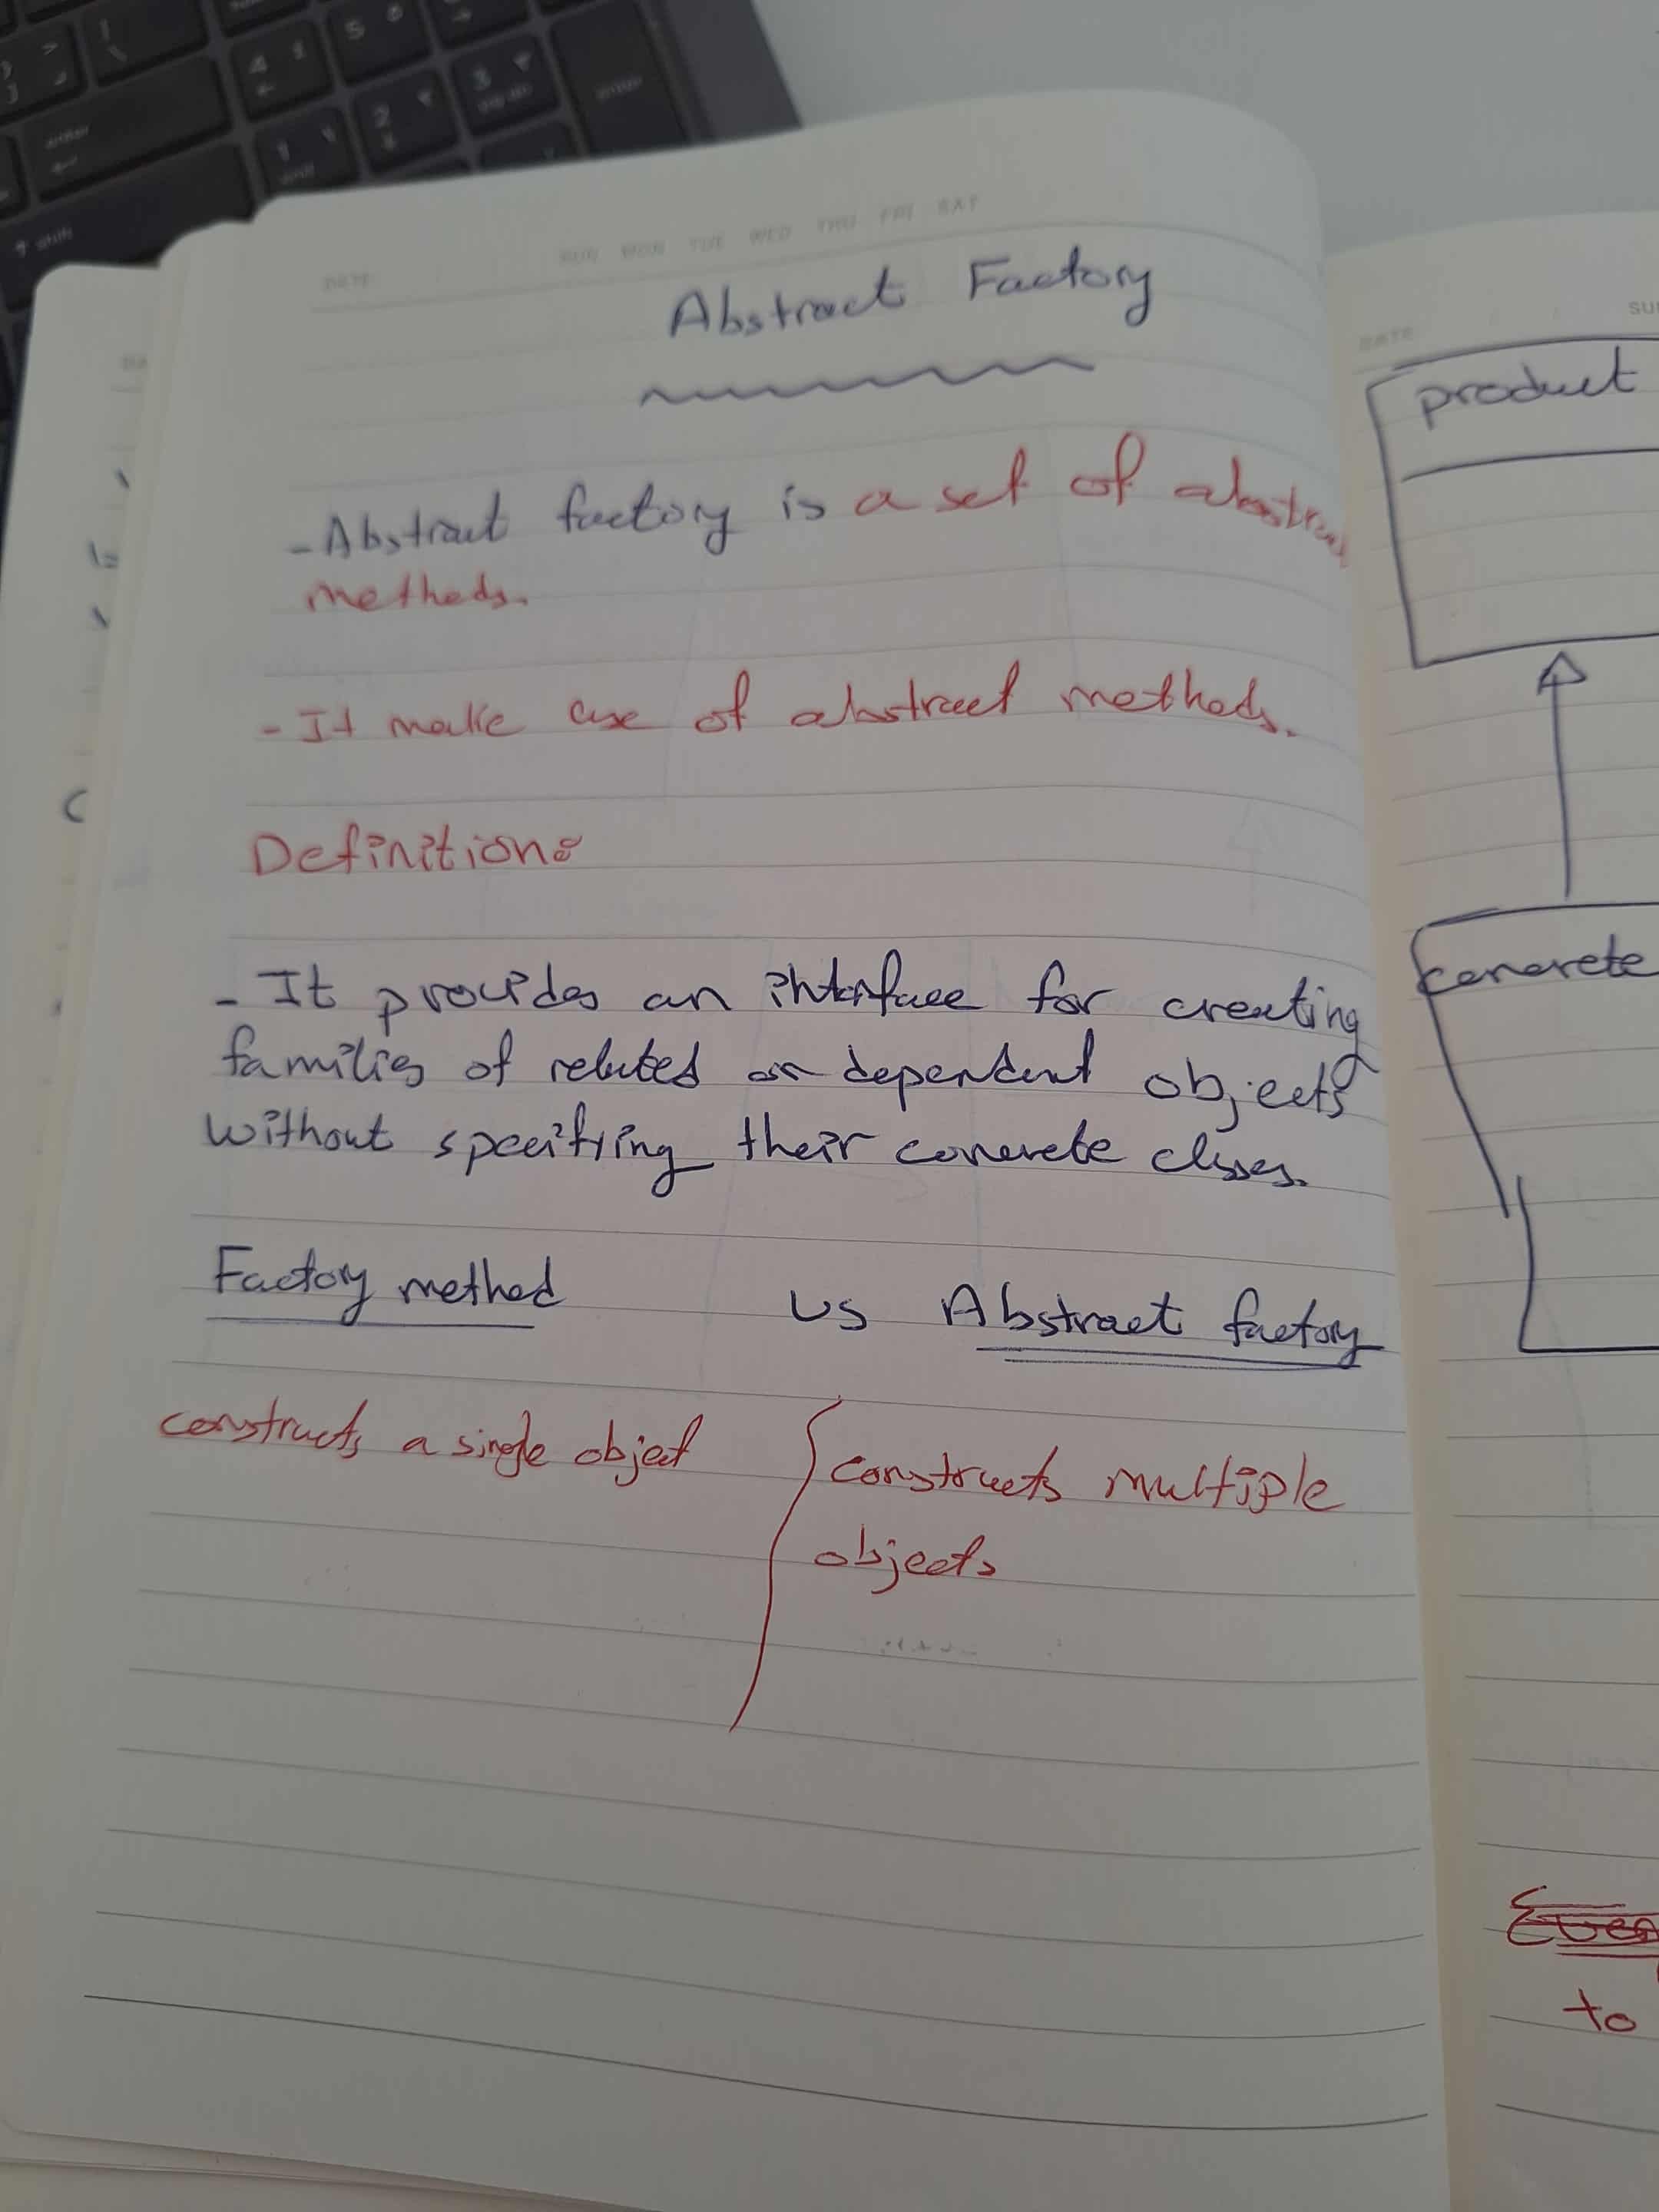 DATE
SUN MON TUE WED THU FRI SAT
Abstract Factory
- Abstract factory is a set of abstract
methods.
- It make use of abstract methods.
Definition:
- It provides an interface for creating
families of related or dependent objects
without specifying their concrete classes.
Factory method vs Abstract factory
constructs a single object
constructs multiple
objects
DATE
product
concrete
to
shift
enter
1
2
3
4
5